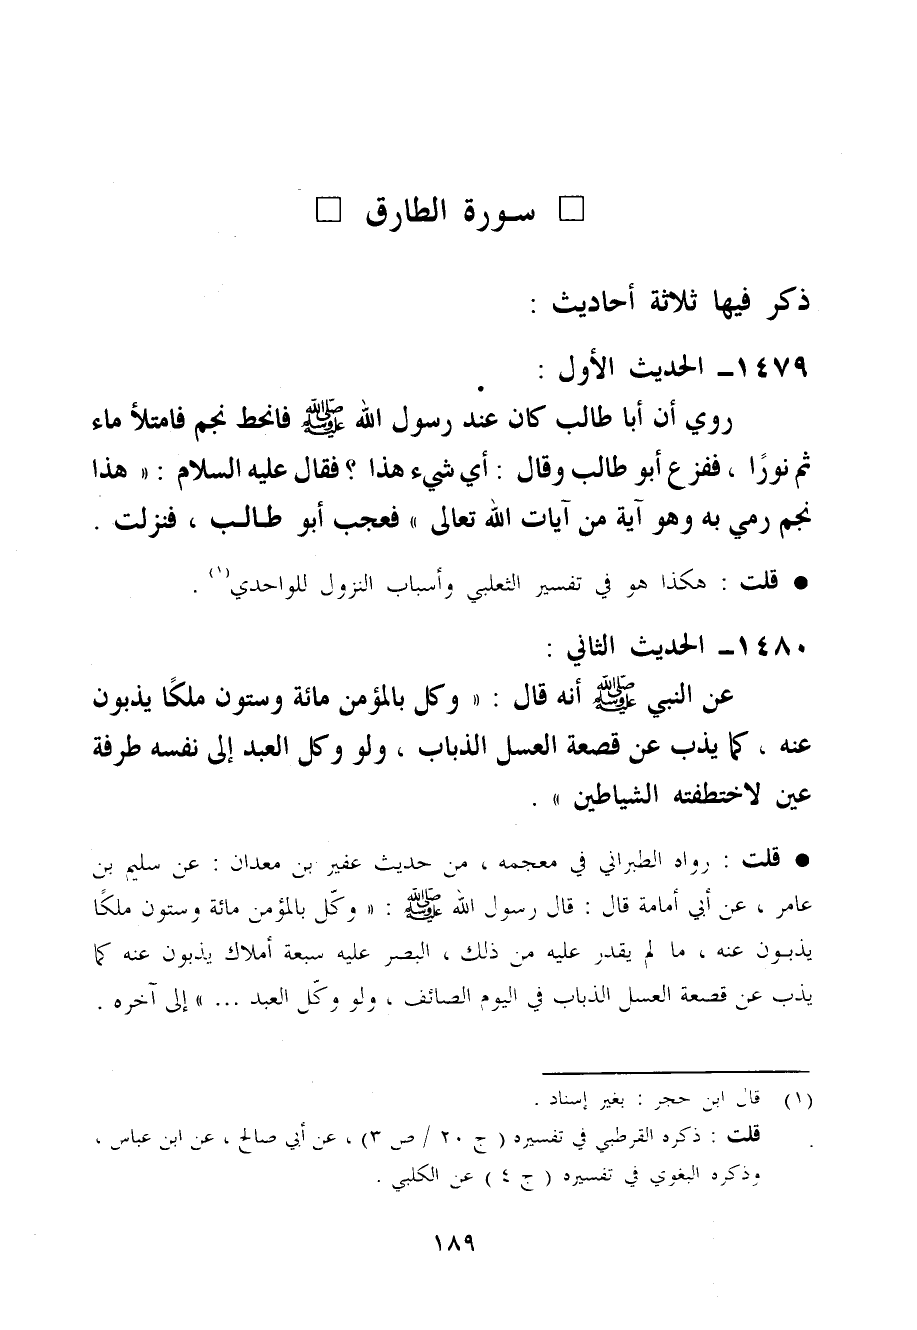 □ سورة الطارق □
ذكر فيها ثلاثة أحاديث :
١٤٧٩ـ الحديث الأول :
روي أن أبا طالب كان عند رسول الله ﷺ فانحط نجم فامتلأ ماء
ثم نورًا ، ففزع أبو طالب وقال : أي شيء هذا ؟ فقال عليه السلام : « هذا
نجم رمي به وهو آية من آيات الله تعالى » فعجب أبو طالب ، فنزلت .
● قلت : هكذا هو في تفسير الثعلبي وأسباب النزول للواحدي(١) .
١٤٨٠ـ الحديث الثاني :
عن النبي ﷺ أنه قال : « وكل بالمؤمن مائة وستون ملكًا يذبون
عنه ، كما يذب عن قصعة العسل الذباب ، ولو وكل العبد إلى نفسه طرفة
عين لاختطفته الشياطين » .
● قلت : رواه الطبراني في معجمه ، من حديث عفير بن معدان : عن سليم بن
عامر ، عن أبي أمامة قال : قال رسول الله ﷺ : « وكّل بالمؤمن مائة وستون ملكًا
يذبون عنه ، ما لم يقدر عليه من ذلك ، البصر عليه سبعة أملاك يذبون عنه كما
يذب عن قصعة العسل الذباب في اليوم الصائف ، ولو وكّل العبد ... » إلى آخره .
(١) قال ابن حجر : بغير إسناد .
قلت : ذكره القرطبي في تفسيره ( ج ٢٠ / ص ٣) ، عن أبي صالح ، عن ابن عباس ،
وذكره البغوي في تفسيره ( ج ٤ ) عن الكلبي .
١٨٩